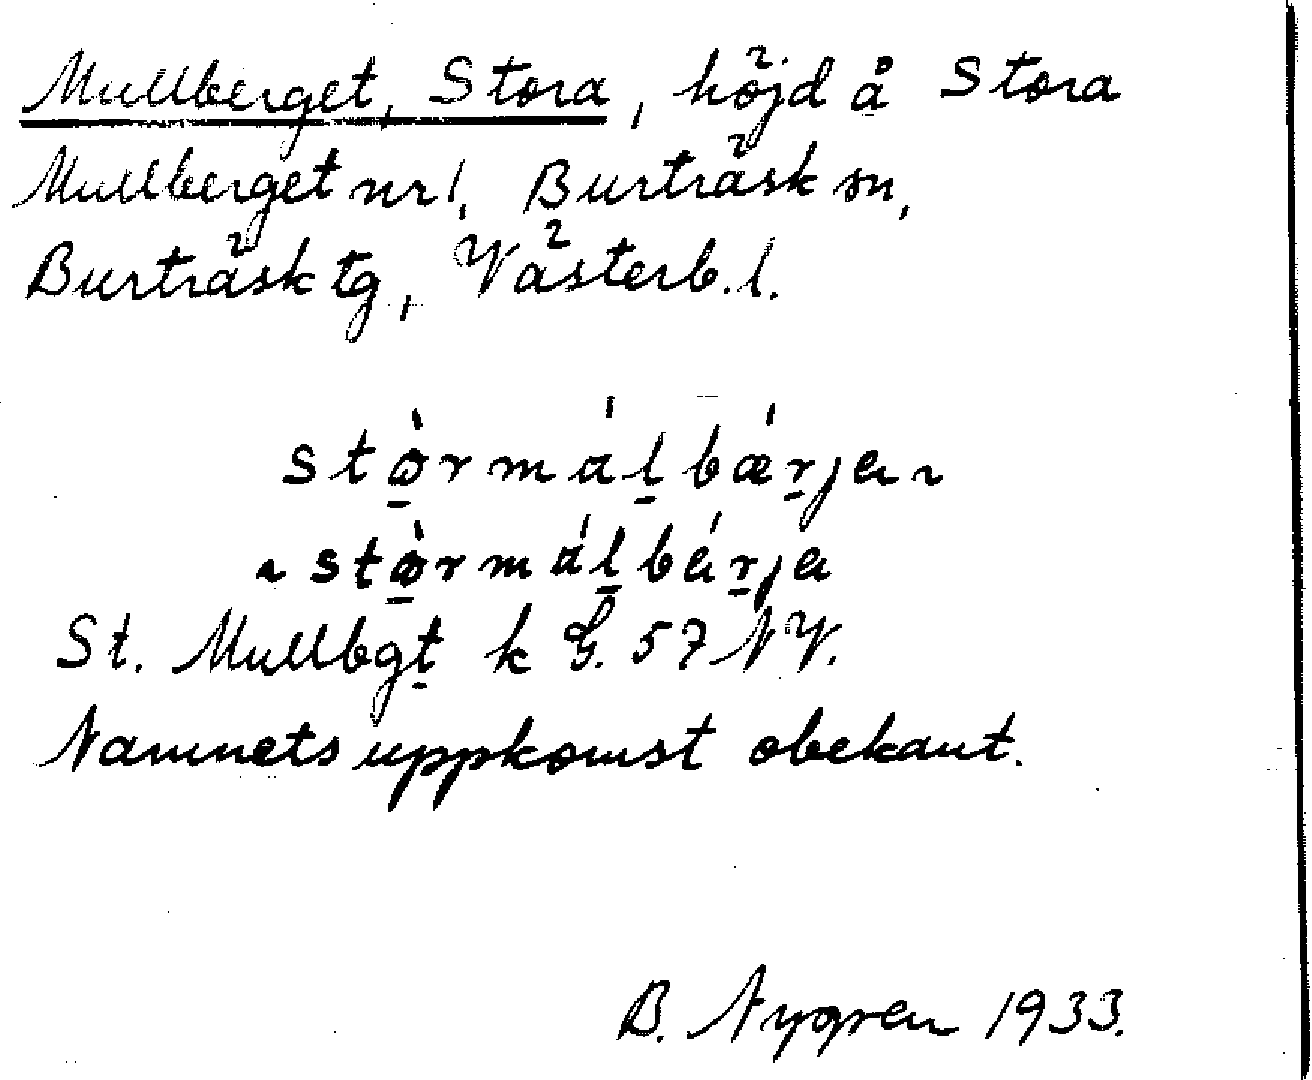 Mullberget, Stora, höjd å Stora
Mullberget nr 1, Burträsk sn,
Burträsk tg, Västerb. l.
St. Mullbgt k G. 57 NV.
Namnets uppkomst obekant.
B. Nygren 1933.